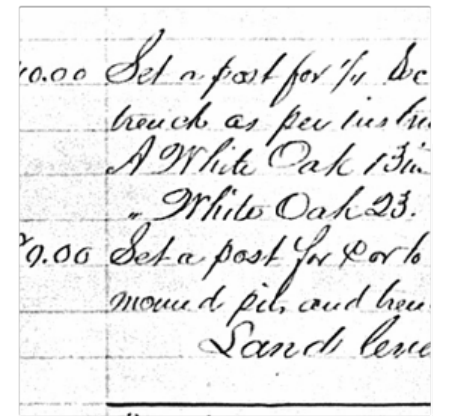 40.00 Set a post for 1/4 Sec
trench as per instru
A White Oak 13 in
" White Oak 23.
Set a post for Cor to
mound pits and tren
Lands leve